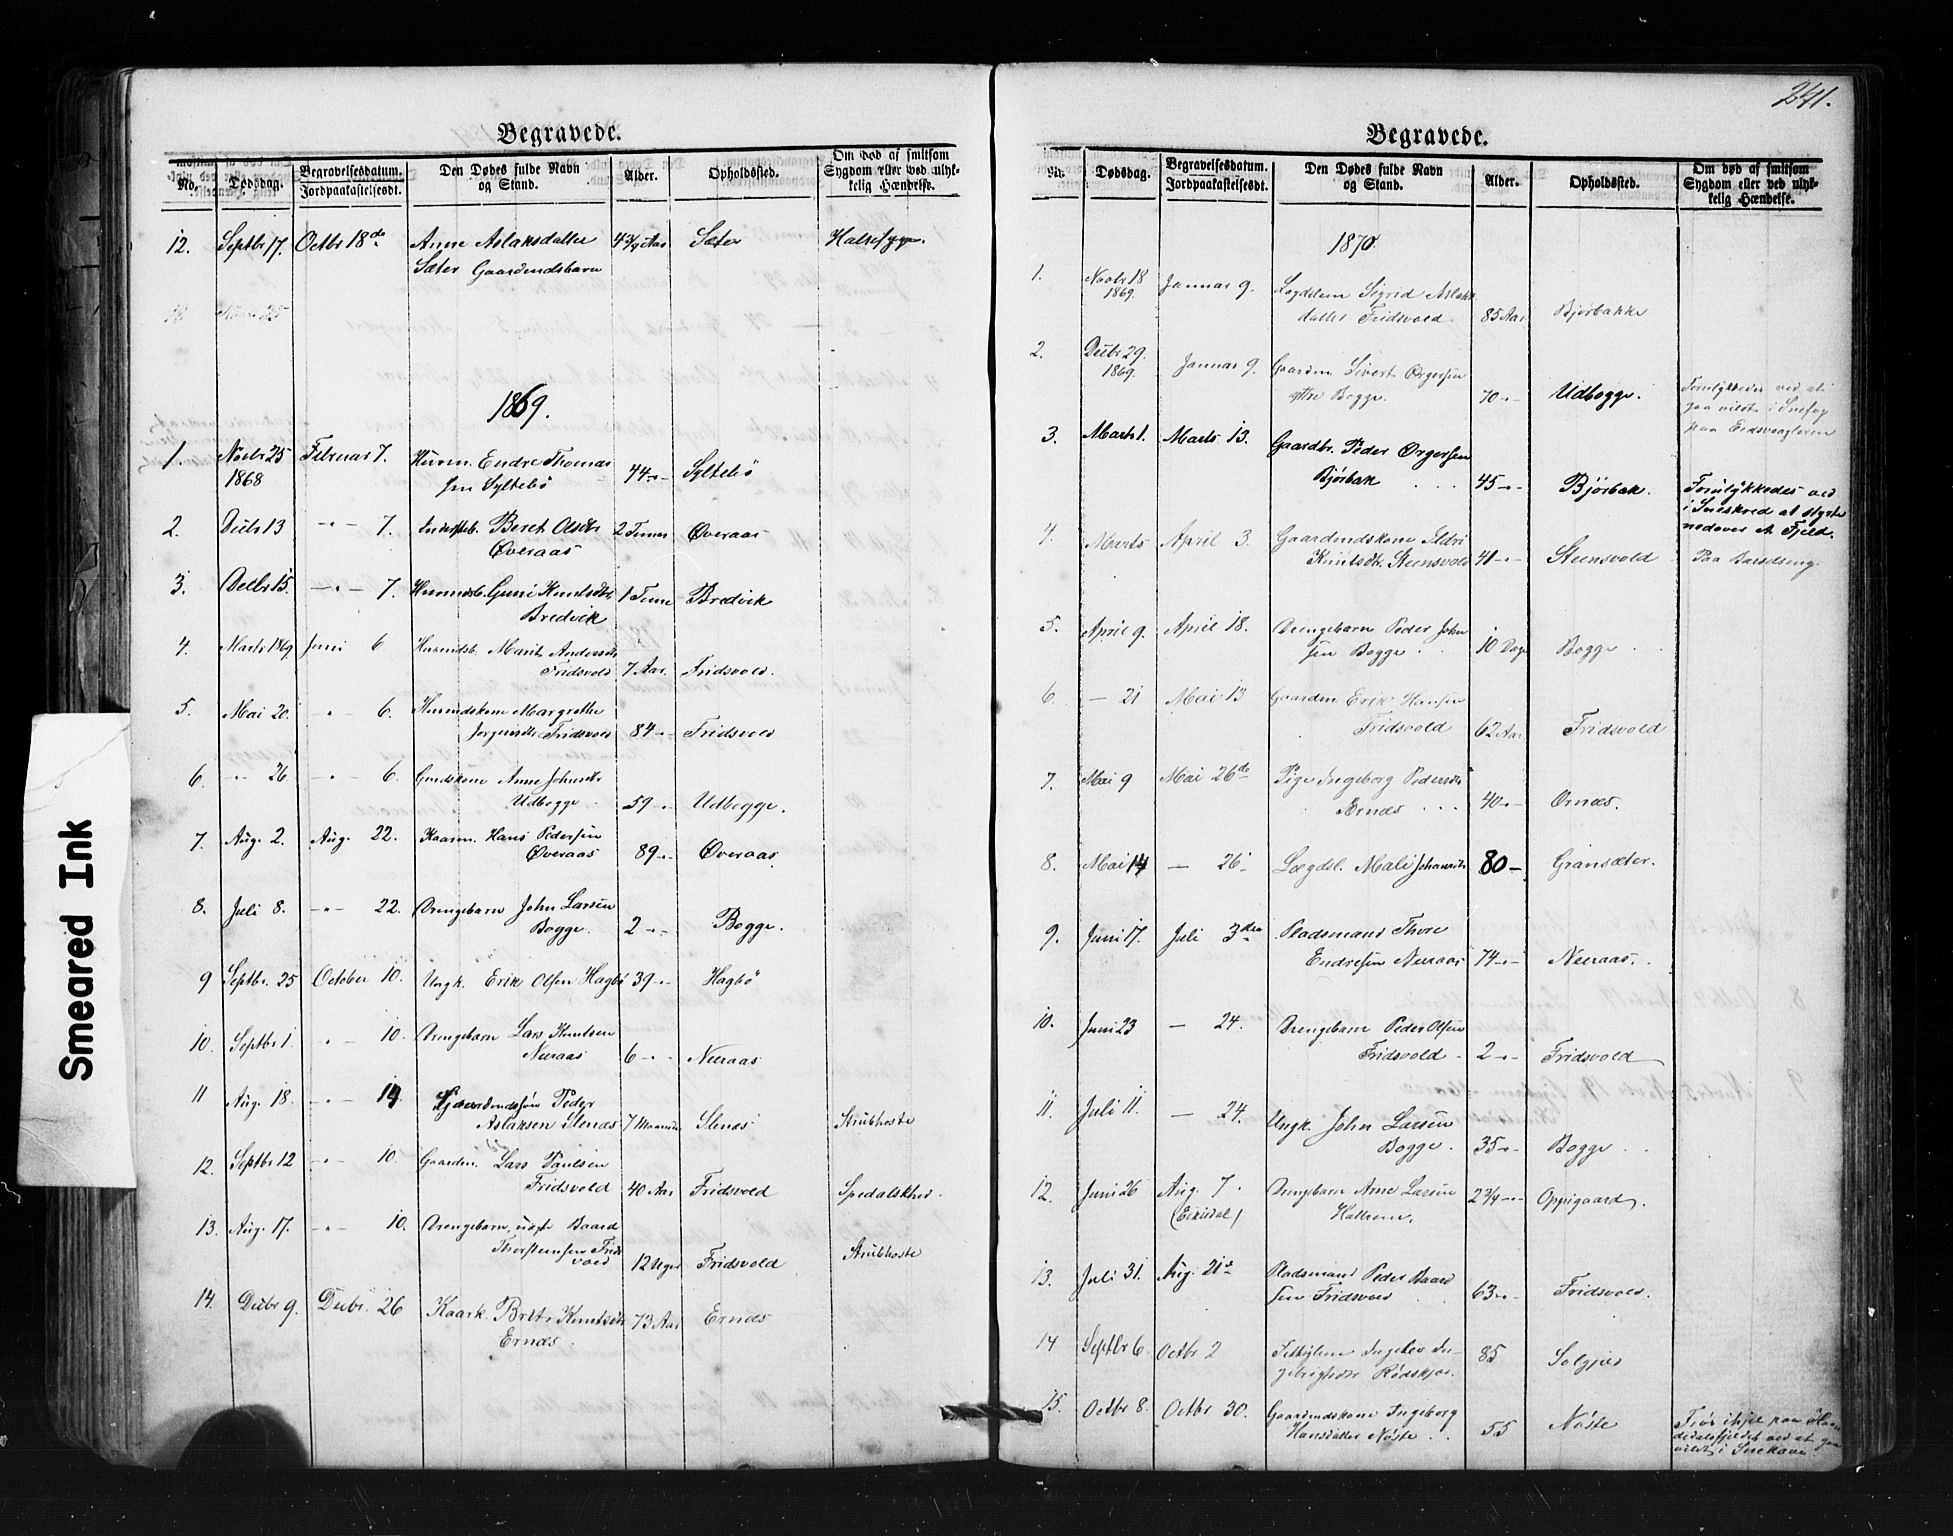 Begravede.
No. Dødsdag. Begravelsesdatum. Jordpaakastelsesdt. Den Dødes fulde Navn og Stand. Alder. Opholdssted. Om død af smitsom Sygdom eller ved ulykkelig Hændelse.
12. Septbr 17. Octbr 18de Anne Aslaksdatter 4 3/4 Aar Sæter Halsesyge.
Sæter Gaardmdsbarn
1869.
1. Novbr 25 Februar 7. Husm. Endre Thomas
1868 sen Syltebö 44 -"- Syltebö
2. Decbr 13 -"- 7. Beret Olsdtr 2 Timer Øveraas
Øveraas
3. Decbr 15. -"- 7. Husmdsb. Guri Knutsdtr 1 Time Bredvik
Bredvik
4. Marts 1869 Juni 6 Husmdsb. Marit Andersdtr
Fridsvold 7 Aar. Fridsvold.
5. Mai 20. -"- 6. Husmdskone Margrethe
Jørgensdtr Fridsvold 84 -"- Fridsvold
6. -"- 26 -"- 6. Gmdskone Anne Johnsdtr
Udbogge 59 -"- Udbogge.
7. Aug. 2. Aug. 22. Kaarm. Hans Pedersen
Øveraas 89 -"- Øveraas
8. Juli 8. -"- 22. Drengebarn John Larsen
Bogge. 2 -"- Bogge.
9 Septbr. 25 October 10. Ungk. Erik Olsen Hagbö 39 -"- Hagbö
10. Septbr 1. -"- 10. Drengebarn Lars Knutsen
Neeraas 6 -"- Neeraas
11 Aug. 18. -"- 14 Gaardmdssön Peder
Aslaksen Stenæs 7 Maaneder Stenæs Strubhoste
12. Septbr 12 -"- 10. Gaardm. Lars Paulsen
Fridsvold 40 Aar Fridsvold Spedalskhed.
13. Aug. 17. -"- 10. Drengebarn, Baard
Thorsteinsen Frids
vold 12 Uger Fridsvold Strubhoste
14. Decbr 9. Decbr. 26 Kaark. Brit Knutsdtr 73 Aar Ernæs
Ernæs.
241.
Begravede.
No. Dødsdag. Begravelsesdatum. Jordpaakastelsesdt. Den Dødes fulde Navn og Stand. Alder. Opholdssted. Om død af smitsom Sygdom eller ved ulykkelig Hændelse.
1870.
1. Novbr 18 Januar 9. Legdslem Sigrid Aslaks
1869. datter Fridsvold. 85 Aar Bjørbakke
2. Decbr 29. Januar 9. Gaardm Sivert Orgersen
1869. ytre Bogge. 70 -"- Udbogge. Forulykkedes ved at
gaa vildt i Snefog
paa
3. Marts 1. Marts 13. Gaardbr. Peder Orgersen
Bjørbak 45 -"- Bjørbak. Forulykkedes ved
i Sneskred at styrte
nedover et Fjeld.
4. Marts April 3. Gaardmdskone Sidri
Knutsdtr. Steensvold 41 -"- Steensvold Paa Barselseng.
5. April 9. April 18. Drengebarn Peder John
sen Bogge 10 Dage Bogge
6. - 21 Mai 13 Gaardm Erik Hansen
Fridsvold 62 Aar Fridsvold
7. Mai 9 Mai 26de Pige Ingeborg Pedersdtr
Ærnæs 40 -"- Ørnæs.
8. Mai 14 - 26 Lægdsl. Mali Johansdtr 80 - Gransæter.
9. Juni 17. Juli 3den Pladsmand Thore
Endresen Neeraas 74 -"- Neeraas.
10. Juni 23 - 24. Drengebarn Peder Olsen
Fridsvold 2 -"- Fridsvold
11. Juli 11. - 24. Ungk. John Larsen
Bogge. 35 -"- Bogge
12. Juni 26 Aug. 7. Drengebarn Arne Larsen 2 3/4 -"- Oppigaard.
(Eikisdal)
13. Juli 31. Aug. 21de Pladsmand Peder Baard
sen Fridsvold 63 -"- Fridsvold.
14 Septbr 6. Octbr 2 Ingebor In-
gebrigtsdtr Rødskjær. 85 Solgjeld
15. Octbr 8. Octbr 30. Gaardmdskone Ingeborg
Hansdatter Nöste 55 Nöste Frös ihjel paa
ved at gaa
vildt i
Smeared Ink